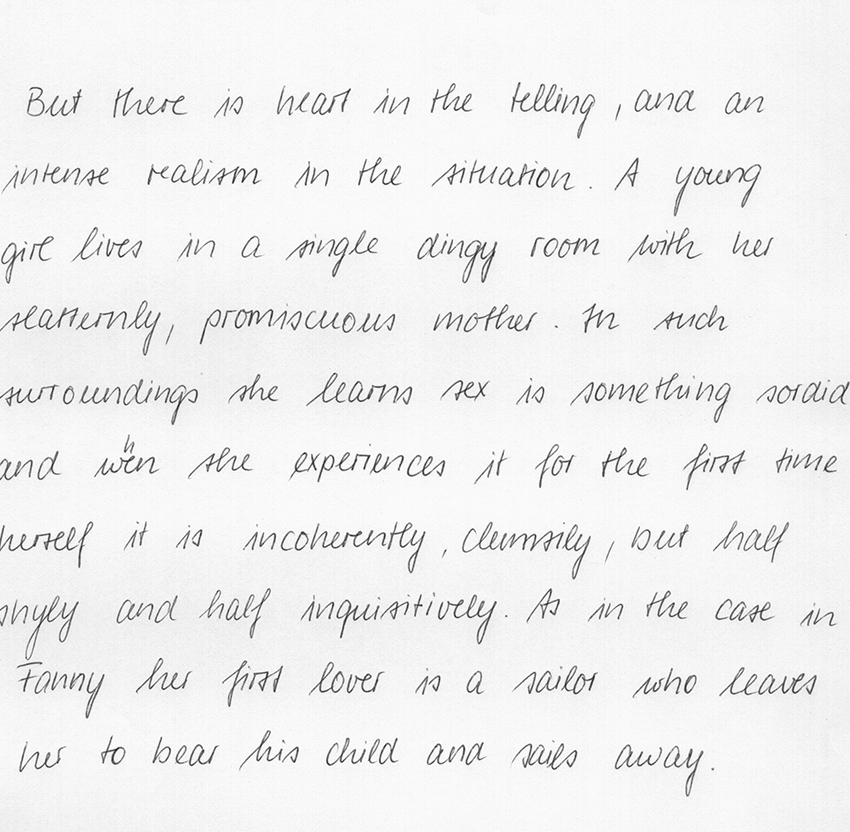 But there is heart in the telling, and an
intense realism in the situation. A young
girl lives in a single dingy room with her
slatternly, promiscuous mother. In such
surroundings she learns sex is something sordid
and when she experiences it for the first time
herself it is incoherently, clumsily, but half
shyly and half inquisitively. As in the case in
Fanny her first lover is a sailor who leaves
her to bear his child and sails away.